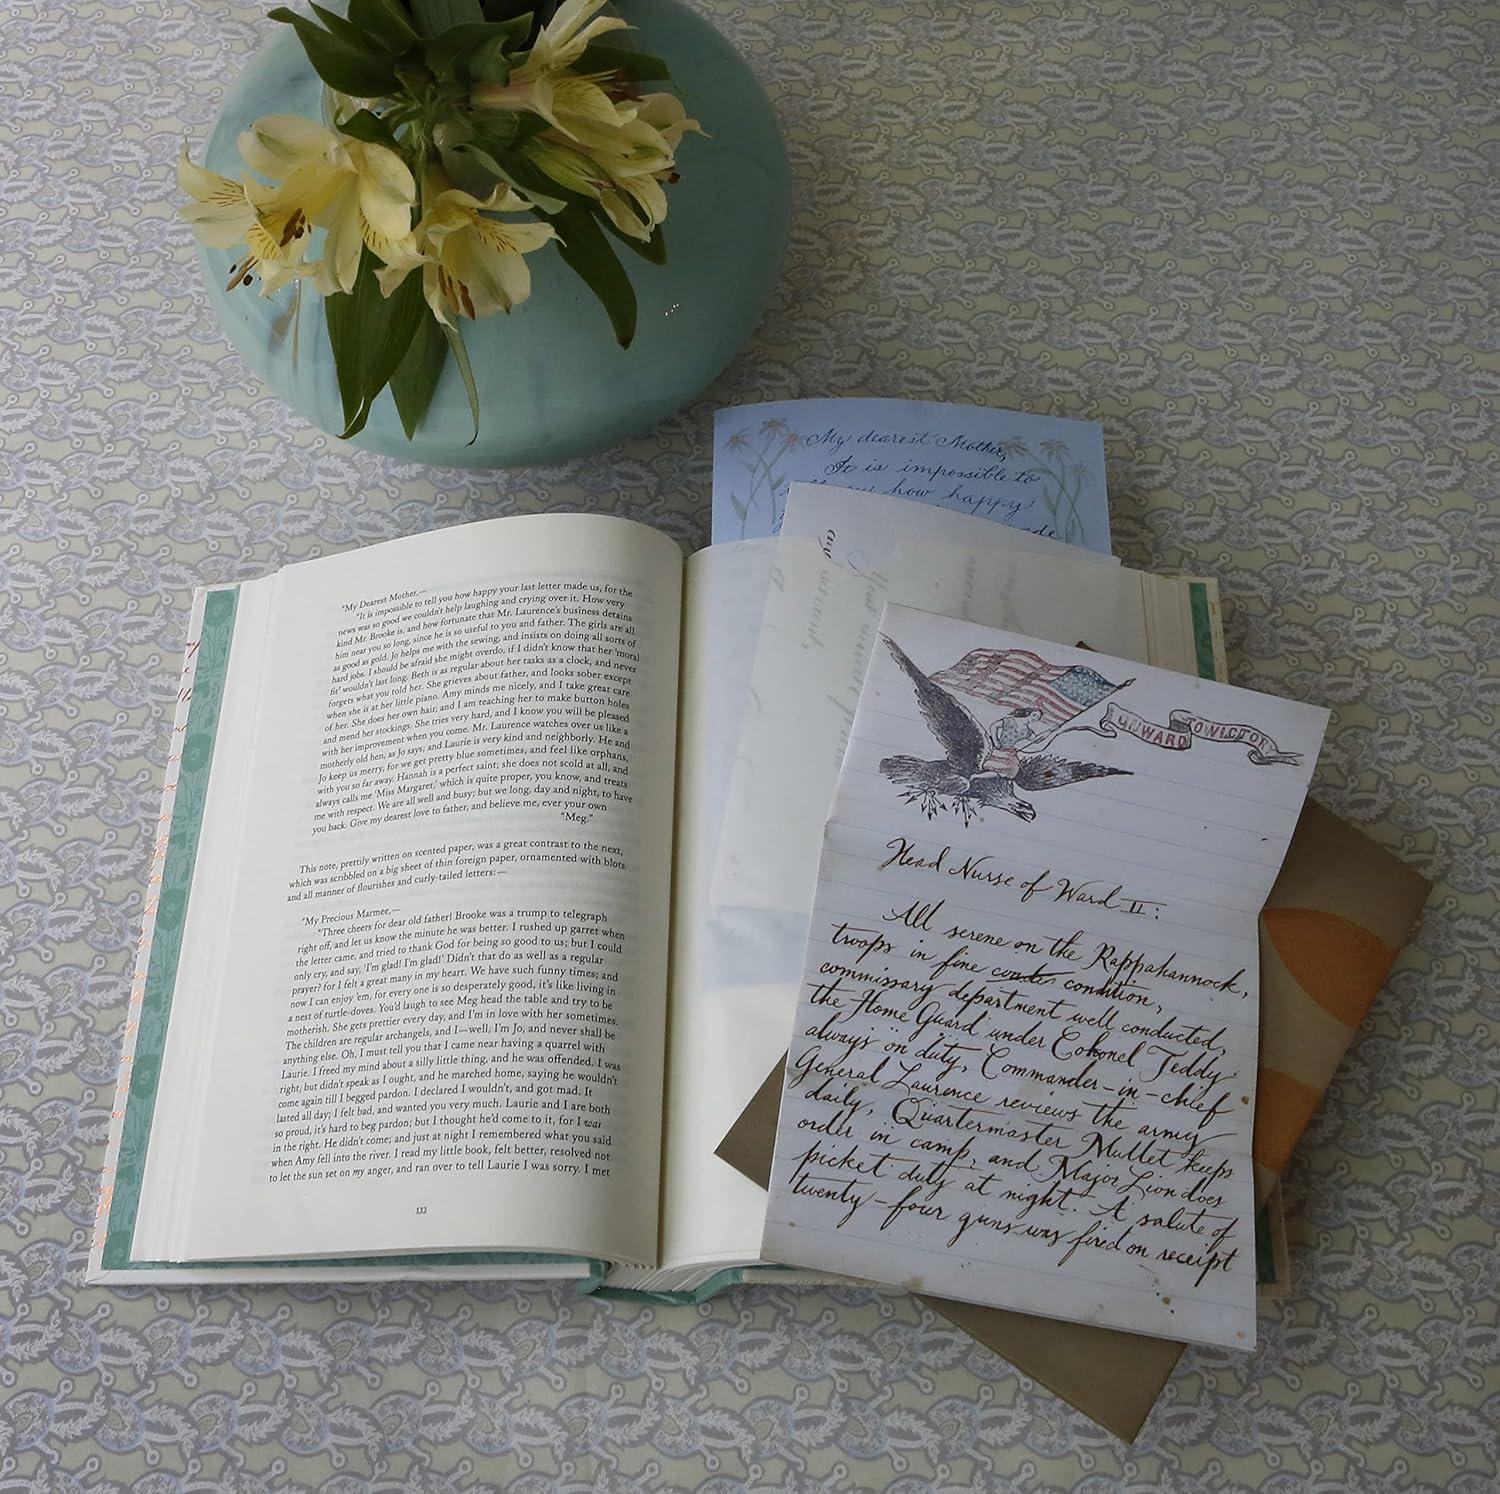 "My Dearest Mother,—
"It is impossible to tell you how happy your last letter made us, for the
news was so good we couldn't help laughing and crying over it. How very
kind Mr. Brooke is, and how fortunate that Mr. Laurence's business detains
him near you so long, since he is so useful to you and father. The girls are all
as good as gold. Jo helps me with the sewing, and insists on doing all sorts of
hard jobs. I should be afraid she might overdo, if I didn't know that her 'moral
fit' wouldn't last long. Beth is as regular about her tasks as a clock, and never
forgets what you told her. She grieves about father, and looks sober except
when she is at her little piano. Amy minds me nicely, and I take great care
of her. She does her own hair, and I am teaching her to make button holes
and mend her stockings. She tries very hard, and I know you will be pleased
with her improvement when you come. Mr. Laurence watches over us like a
motherly old hen, as Jo says; and Laurie is very kind and neighborly. He and
Jo keep us merry, for we get pretty blue sometimes, and feel like orphans,
with you so far away. Hannah is a perfect saint; she does not scold at all, and
always calls me 'Miss Margaret,' which is quite proper, you know, and treats
me with respect. We are all well and busy; but we long, day and night, to have
you back. Give my dearest love to father, and believe me, ever your own
"Meg."
This note, prettily written on scented paper, was a great contrast to the next,
which was scribbled on a big sheet of thin foreign paper, ornamented with blots
and all manner of flourishes and curly-tailed letters:—
"My Precious Marmee,—
"Three cheers for dear old father! Brooke was a trump to telegraph
right off, and let us know the minute he was better. I rushed up garret when
the letter came, and tried to thank God for being so good to us; but I could
only cry, and say, 'I'm glad! I'm glad!' Didn't that do as well as a regular
prayer? for I felt a great many in my heart. We have such funny times; and
now I can enjoy 'em, for every one is so desperately good, it's like living in
a nest of turtle-doves. You'd laugh to see Meg head the table and try to be
motherish. She gets prettier every day, and I'm in love with her sometimes.
The children are regular archangels, and I—well, I'm Jo, and never shall be
anything else. Oh, I must tell you that I came near having a quarrel with
Laurie. I freed my mind about a silly little thing, and he was offended. I was
right, but didn't speak as I ought, and he marched home, saying he wouldn't
come again till I begged pardon. I declared I wouldn't, and got mad. It
lasted all day; I felt bad, and wanted you very much. Laurie and I are both
so proud, it's hard to beg pardon; but I thought he'd come to it, for I was
in the right. He didn't come; and just at night I remembered what you said
when Amy fell into the river. I read my little book, felt better, resolved not
to let the sun set on my anger, and ran over to tell Laurie I was sorry. I met
132
My dearest Mother,
It is impossible to
how happy
ONWARD TO VICTORY
Head Nurse of Ward II:
All serene on the Rappahannock,
troops in fine condition,
commissary department well conducted,
the Home Guard under Colonel Teddy
always on duty, Commander-in-chief
General Laurence reviews the army
daily, Quartermaster Mullet keeps
order in camp, and Major Lion does
picket duty at night. A salute of
twenty-four guns was fired on receipt